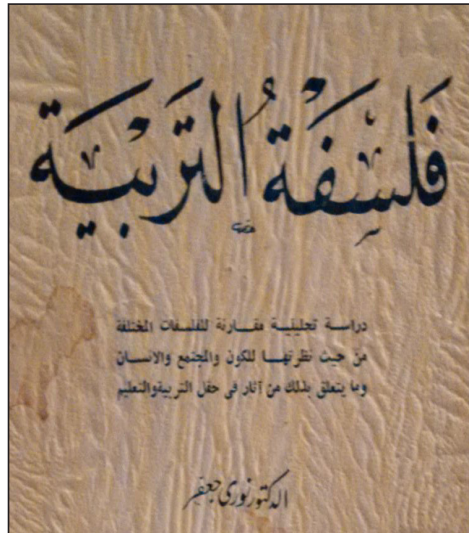 فَلْسَفَةُ التَّرْبِيَة
دراسة تحليلية مقارنة للفلسفات المختلفة
من حيث نظرتها للكون والمجتمع والانسان
وما يتعلق بذلك من آثار فى حقل التربية والتعليم
الدكتور نورى جعفر